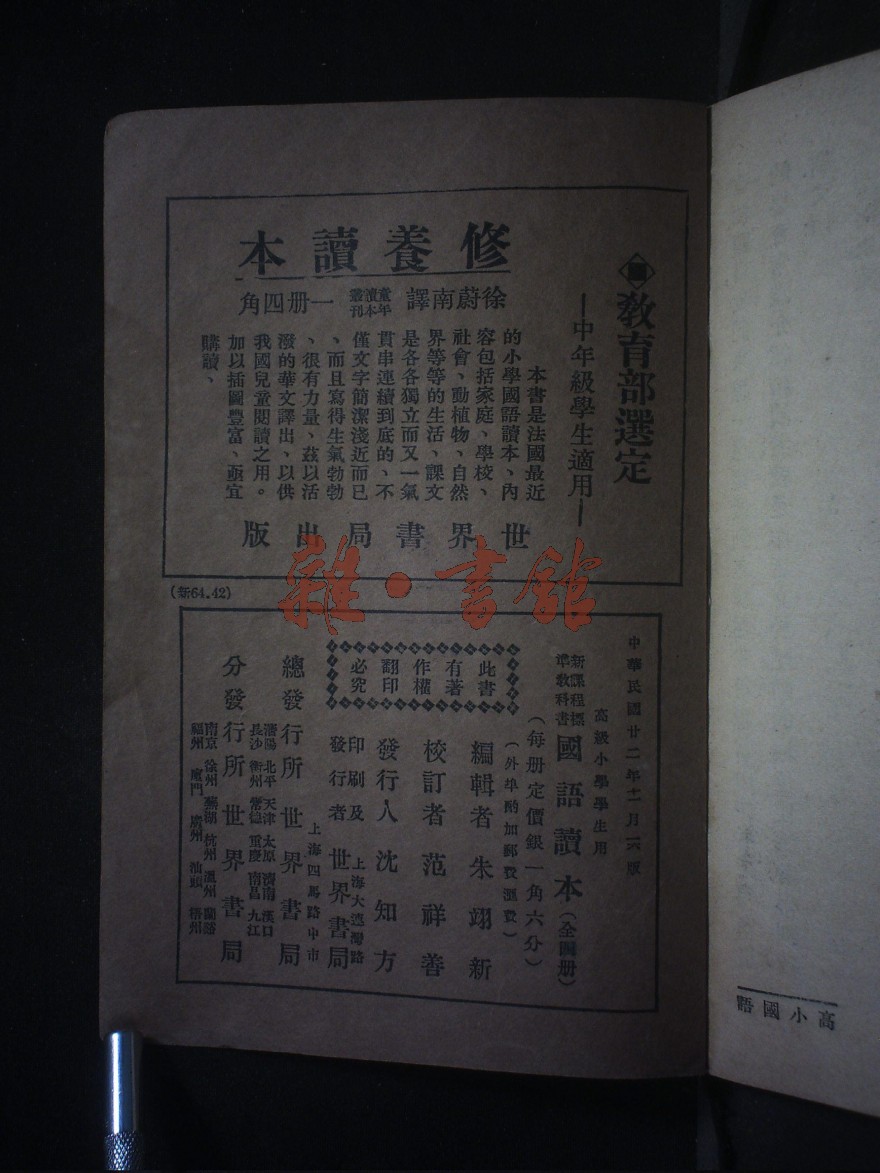 教育部選定
—中年級學生適用—
修養讀本
徐蔚南譯 童年讀本叢刊 一册四角
本書是法國最近
的小學國語讀本、內
容包括家庭、學校、
社會、動植物、自然
界等等的生活、課文
是各各獨立而又一氣
貫串連續到底的、不
僅文字簡潔淺近而已
、而且寫得生氣勃勃
、很有力量、茲以活
潑的華文譯出、以供
我國兒童閱讀之用。
加以插圖豐富、亟宜
購讀、
世界書局出版
(新64.42)
中華民國廿二年十一月六版
高級小學學生用
新課程標準教科書 國語讀本(全四册)
(每册定價銀一角六分)
(外埠酌加郵費滙費)
編輯者 朱翊新
校訂者 范祥善
發行人 沈知方
印刷及發行者 上海大連灣路 世界書局
此書
有著
作權
翻印
必究
上海四馬路中市
總發行所 世界書局
瀋陽 北平 天津 太原 濟南 漢口
長沙 衡州 常德 重慶 南昌 九江
分發行所 世界書局
南京 徐州 蕪湖 杭州 溫州 蘭谿
福州 廈門 廣州 汕頭 梧州
雜·書館
高小國語